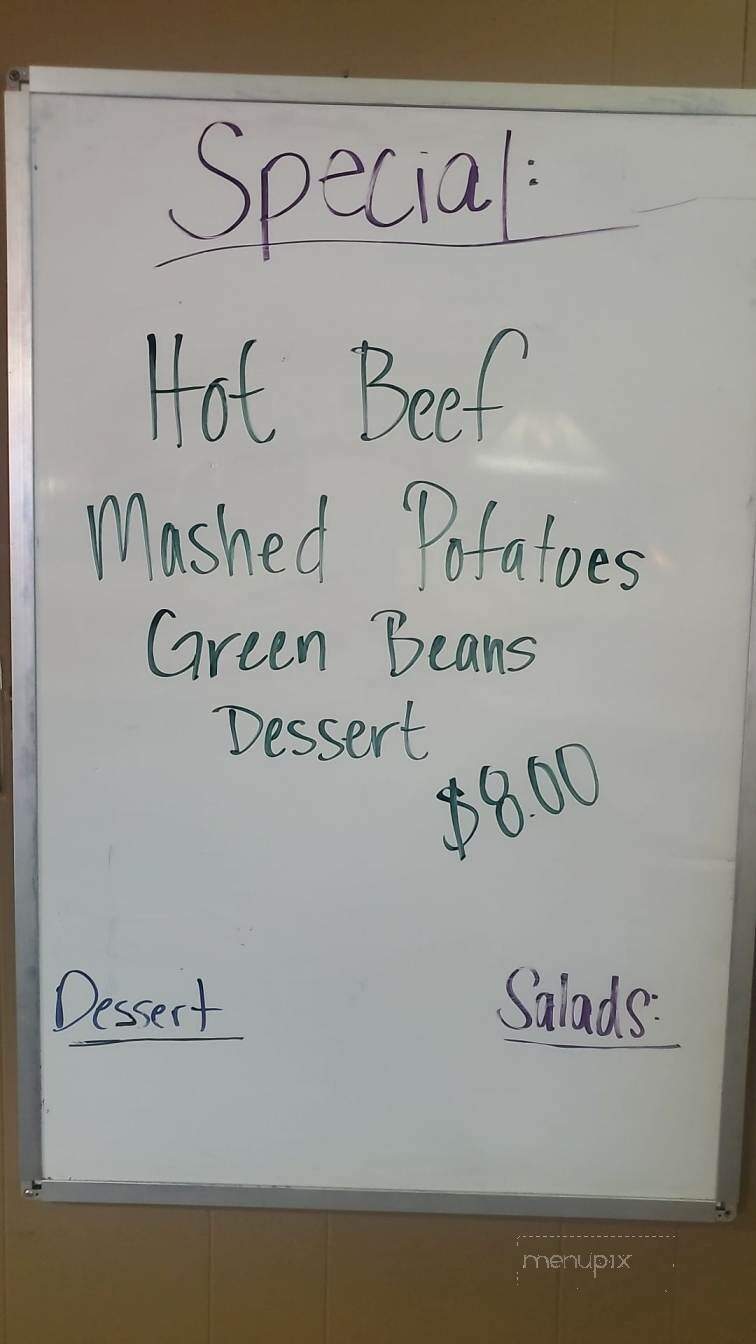 Special:
Hot Beef
Mashed Potatoes
Green Beans
Dessert
$8.00
Dessert
Salads:
menupix